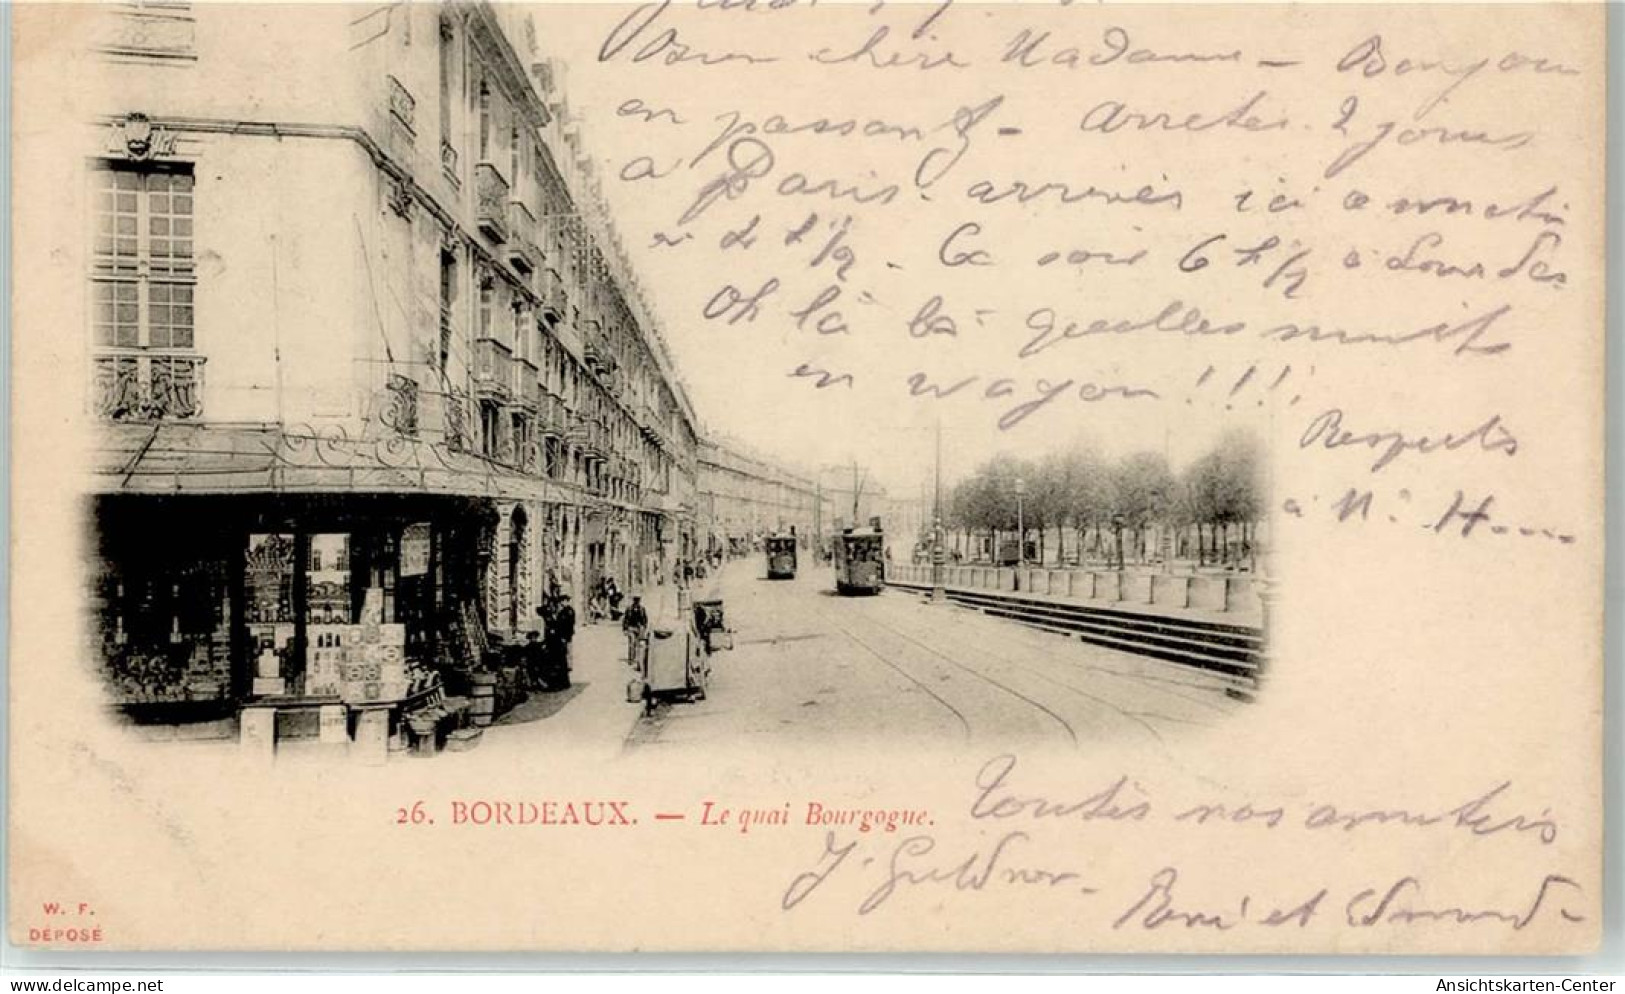 Bien chère Madame – Bonjour
en passant – Arretés 2 jours
à Paris. arrivés ici ce matin
de 1/2 – Ce soir 6 h 1/2 à Lourdes
Oh là là quelles nuit
en wagon !!!
Respects
à Mr
26. BORDEAUX. — Le quai Bourgogne.
Toutes nos amitiés
J. Geldner – René et Edmond –
W. F.
DÉPOSÉ
delcampe.net
Ansichtskarten-Center